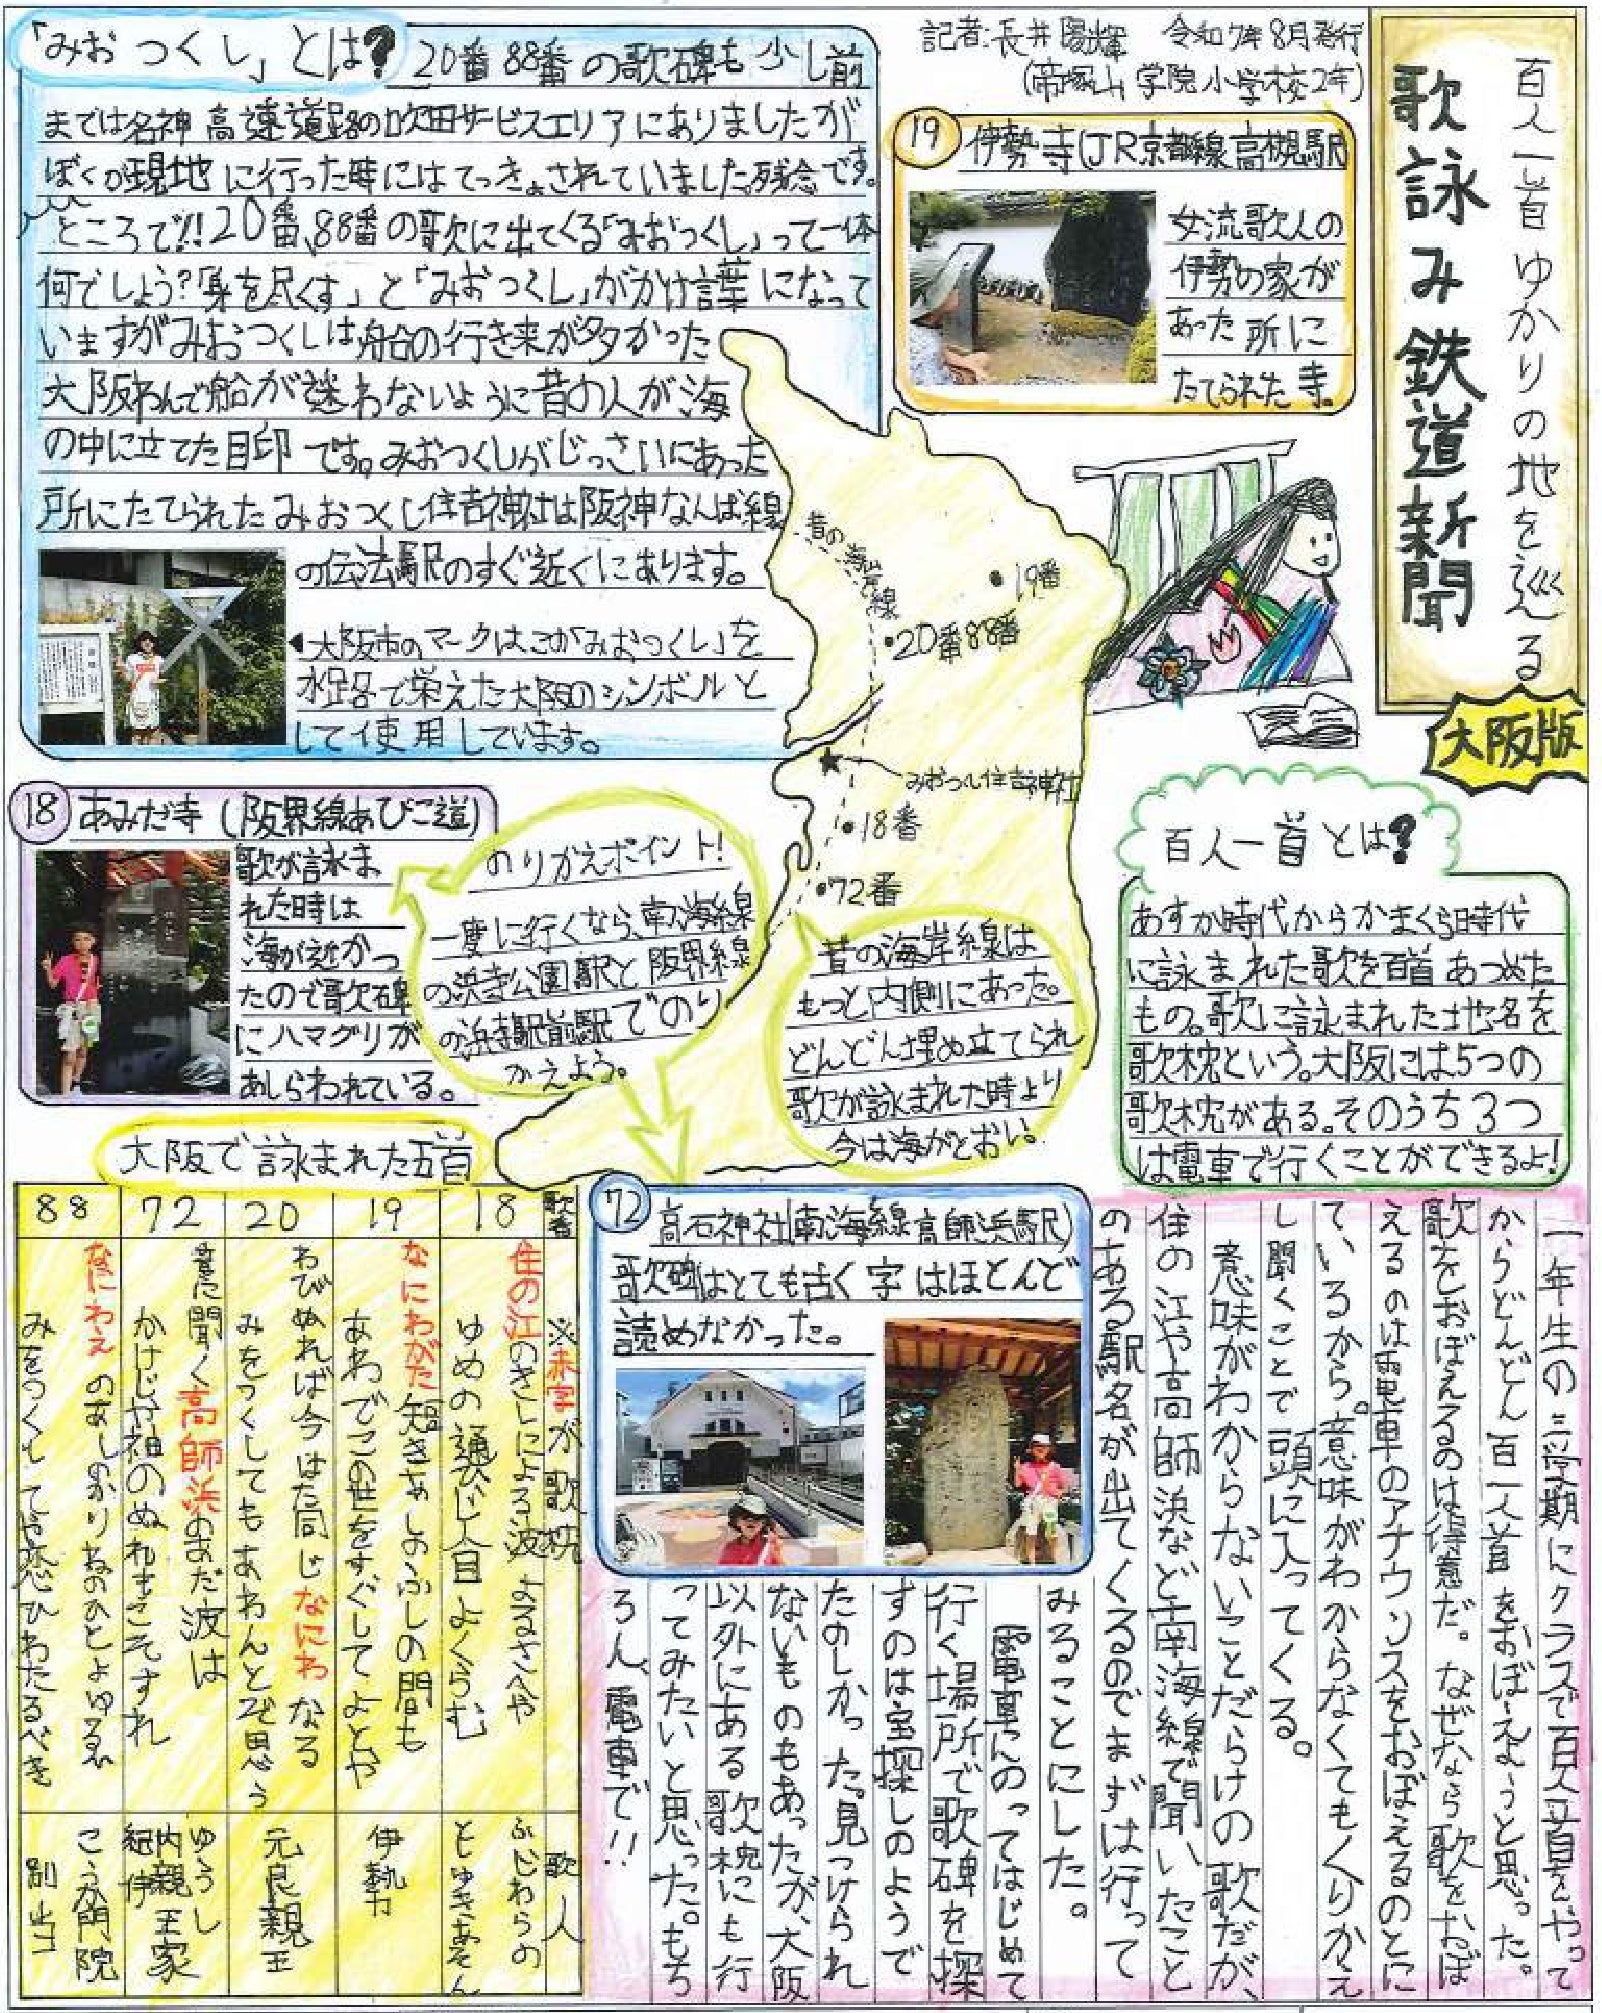 百人一首ゆかりの地を巡る
歌詠み鉄道新聞
大阪版
記者:長井陽輝 令和7年8月発行
(帝塚山学院小学校2年)
「みおつくし」とは?
20番88番の歌碑も少し前
までは名神高速道路の吹田サービスエリアにありましたが
ぼくが現地に行った時にはてっきょされていました。残念です。
ところで!!20番、88番の歌に出てくる「みおつくし」って一体
何でしょう?「身を尽くす」と「みおつくし」がかけ言葉になって
いますがみおつくしは船の行き来が多かった
大阪わんで船が迷わないように昔の人が海
の中に立てた目印です。みおつくしがじっさいにあった
所にたてられたみおつくし住吉神社は阪神なんば線
の伝法駅のすぐ近くにあります。
◀大阪市のマークはこの「みおつくし」を
水路で栄えた大阪のシンボルと
して使用しています。
19 伊勢寺(JR京都線高槻駅)
女流歌人の
伊勢の家が
あった所に
たてられた寺。
昔の海岸線
19番
20番88番
みおつくし住吉神社
18番
72番
18 あみだ寺(阪界線あびこ道)
歌が詠ま
れた時は
海が近かっ
たので歌碑
にハマグリが
あしらわれている。
のりかえポイント!
一度に行くなら、南海線
の浜寺公園駅と阪界線
の浜寺駅前駅でのり
かえよう。
昔の海岸線は
もっと内側にあった。
どんどん埋め立てられ
歌が詠まれた時より
今は海がとおい。
百人一首とは?
あすか時代からかまくら時代
に詠まれた歌を百首あつめた
もの。歌に詠まれた地名を
歌枕という。大阪には5つの
歌枕がある。そのうち3つ
は電車で行くことができるよ!
72 高石神社(南海線高師浜駅)
歌碑はとても古く字はほとんど
読めなかった。
一年生の三学期にクラスで百人一首をやって
からどんどん百人一首をおぼえようと思った。
歌をおぼえるのは得意だ。なぜなら歌をおぼ
えるのは電車のアナウンスをおぼえるのとに
ているから。意味がわからなくてもくりかえ
し聞くことで頭に入ってくる。
意味がわからないことだらけの歌だが、
住の江や高師浜など南海線で聞いたこと
のある駅名が出てくるのでまずは行って
みることにした。
電車にのってはじめて
行く場所で歌碑を探
すのは宝探しのようで
たのしかった。見つけられ
ないものもあったが、大阪
以外にある歌枕にも行
ってみたいと思った。もち
ろん、電車で!!
大阪で詠まれた五首
歌番 ※赤字が歌枕 歌人
18
住の江のきしによる波よるさへや
ゆめの通ひじ人目よくらむ
ふじわらの
としゆきあそん
19
なにわがた短きあしのふしの間も
あわでこの世をすぐしてよとや
伊勢
20
わびぬれば今はた同じなにわなる
みをつくしてもあわんとぞ思う
元良親王
72
音に聞く高師浜のあだ波は
かけじや袖のぬれもこそすれ
ゆうし
内親王家
紀伊
88
なにわえのあしのかりねのひとよゆゑ
みをつくしてや恋ひわたるべき
こうか門院
別当